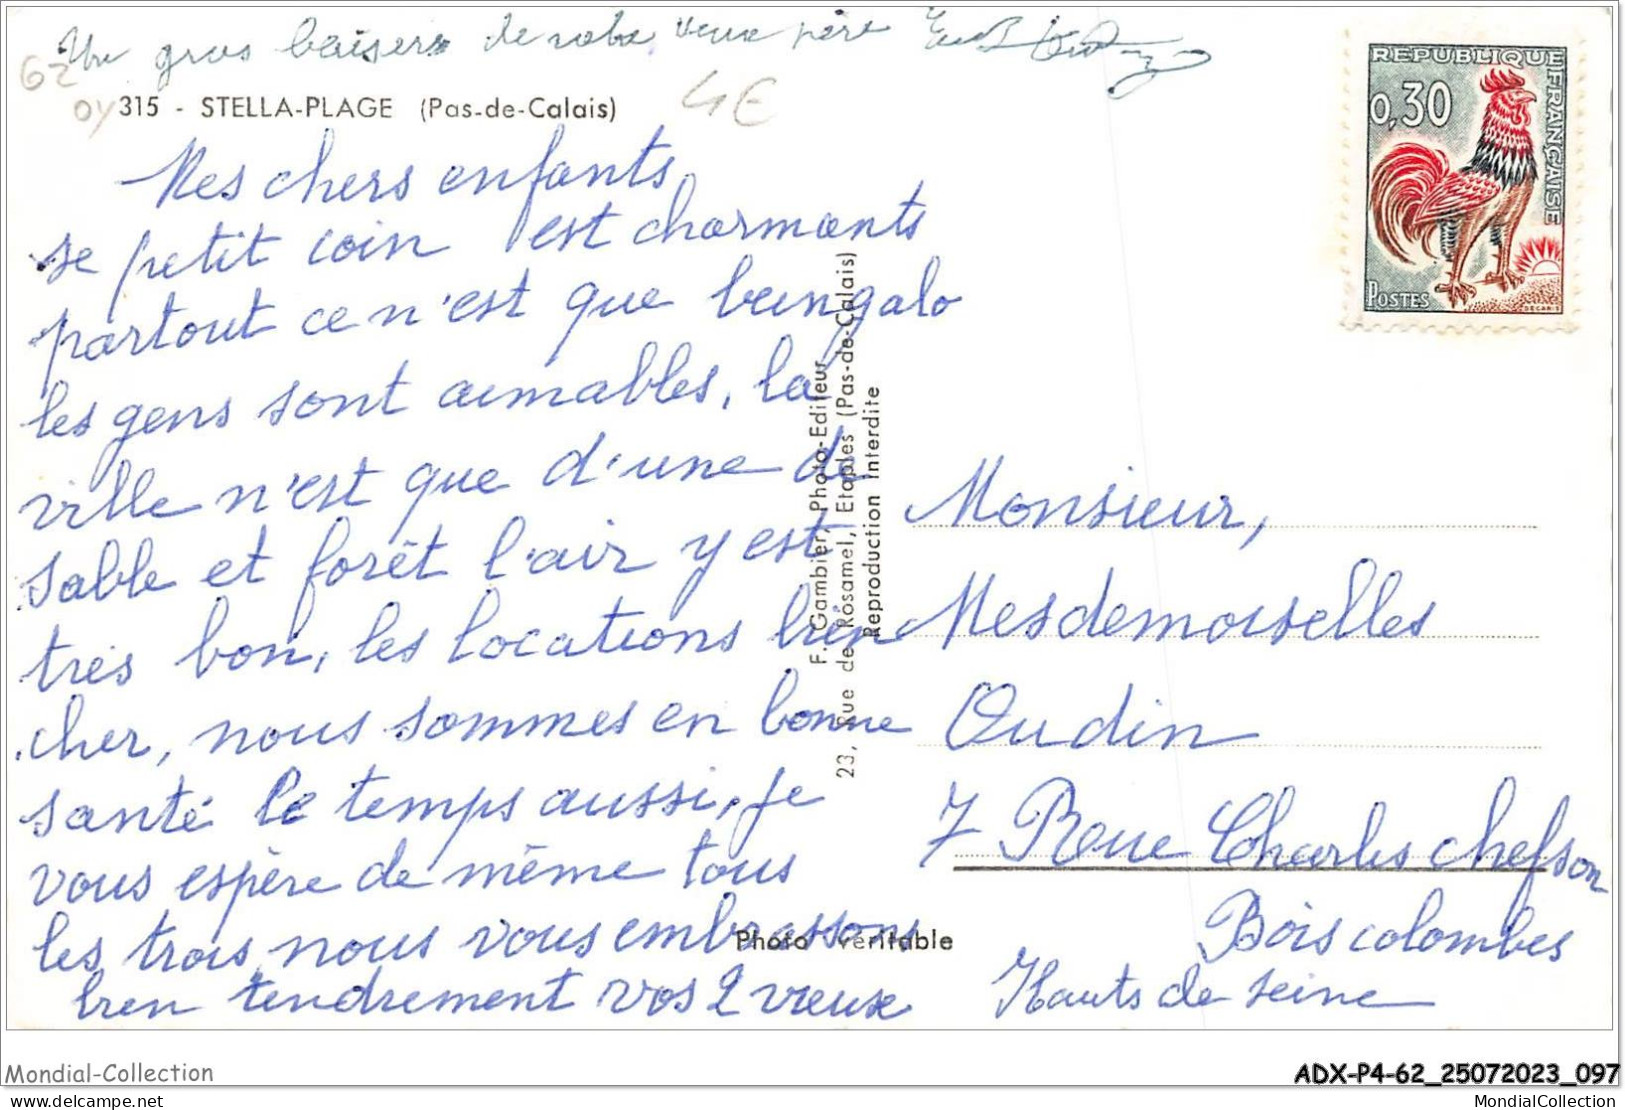 Un gros baisers de votre vieux père
62
OY 315 - STELLA-PLAGE (Pas-de-Calais)
4€
REPUBLIQUE FRANÇAISE
0,30
POSTES
DECARIS
Mes chers enfants,
se petit coin est charmants
partout ce n'est que bungalo
les gens sont aimables, la
ville n'est que d'une de
sable et forêt l'air y est
très bon, les locations bien
cher, nous sommes en bonne
santé le temps aussi, je
vous espère de même tous
les trois nous vous embrassons
bien tendrement vos 2 vieux
F. Gambier, Photo-Editeur
23, Rue de Rosamel, Etaples (Pas-de-Calais)
Reproduction Interdite
Photo véritable
Monsieur,
Mesdemoiselles
Oudin
7 Reue Charles Chefson
Bois colombes
Hauts de seine
Mondial-Collection
ADX-P4-62_25072023_097
www.delcampe.net
MondialCollection